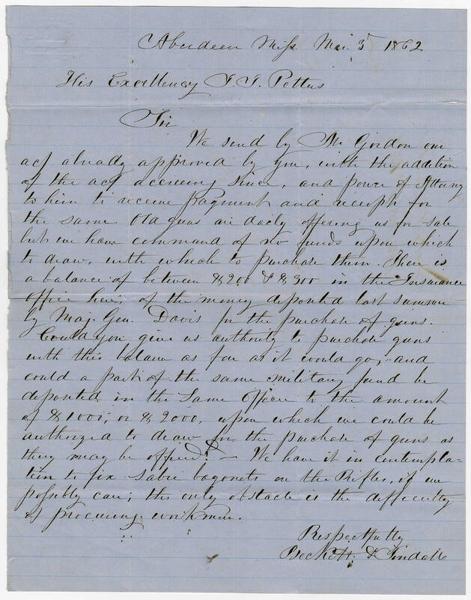 Aberdeen Miss Mar 3d 1862
His Excellency J. J. Pettus
Sir
We send by Mr Gordon our
acf already approved by you, with the addition
of the acf accruing since, and power of Attorny
to him to receive payment and receipt for
the same Old guns are daily offering us on sale
but we have command of no funds upon which
to draw, with which to purchase them. There is
a balance of between $200 & $300 in the Insurance
Office here, of the money deposited last summer
by Maj. Gen. Davis for the purchase of guns.
Could you give us authority to purchase guns
with this balance as far as it would go, and
could a part of the same military fund be
deposited in the same Office to the amount
of $1000, or $2000, upon which we could be
authorized to draw for the purchase of guns as
they may be offered? – We have it in contempla-
tion to fix Sabre bayonets on the Rifles, if we
possibly can; the only obstacle is the difficulty
of procuring workmen.
Respectfully
Beckett & Tindall